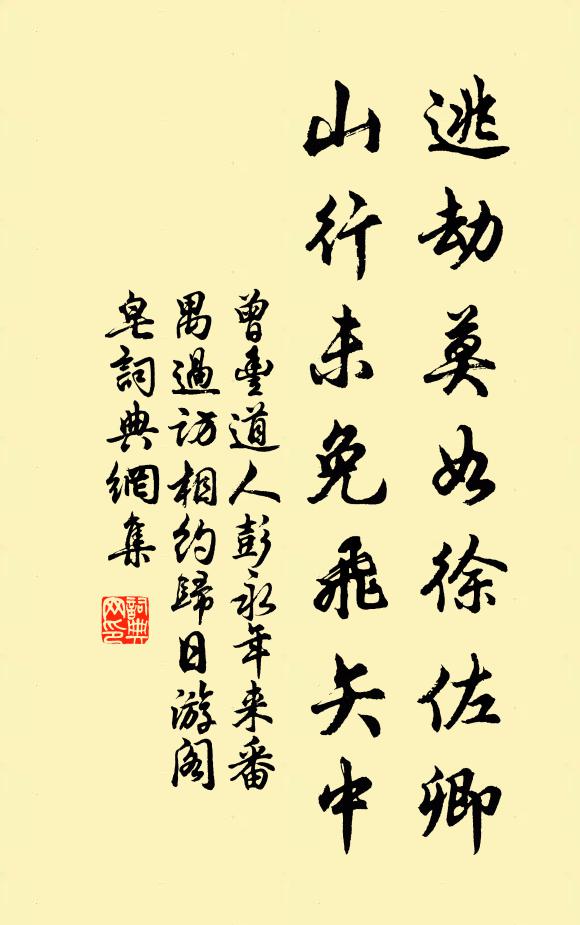 逃劫莫如徐佐卿
山行未免飛矢中
曾豐道人彭永年来番
禺過訪相約歸日游閣
皂詞典網集
詞典
网印